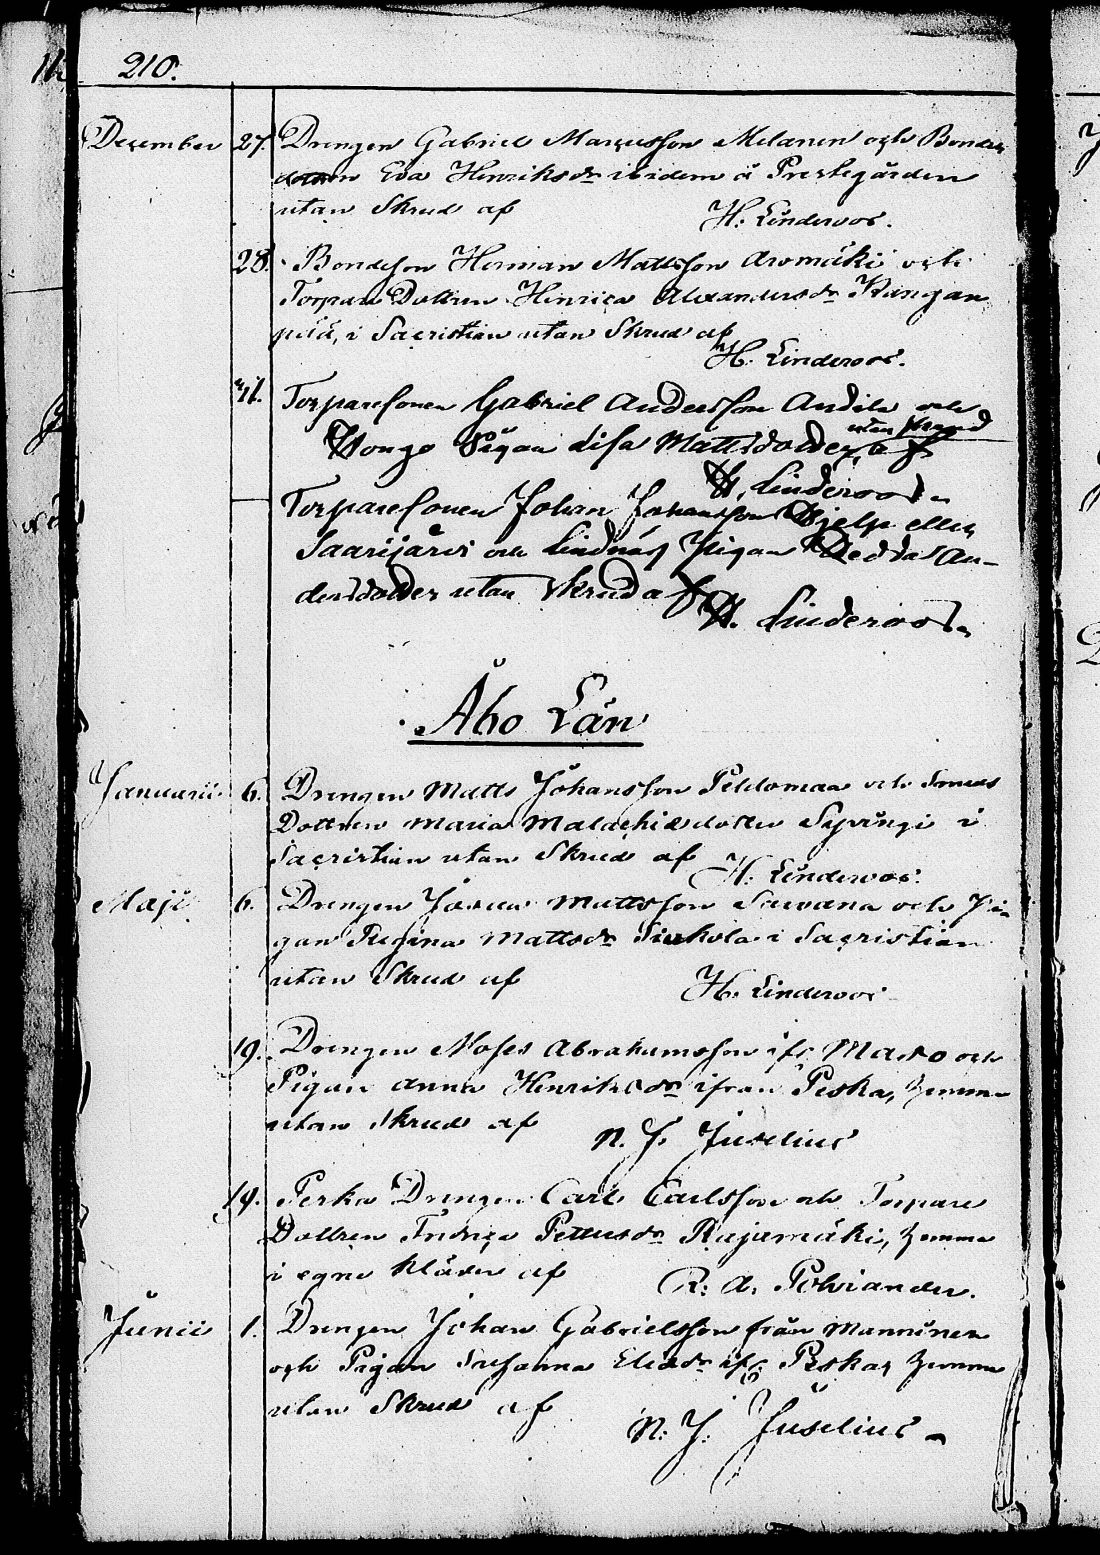 210.
December 27. Drengen Gabriel Marcusson Melanen och Bonde
dottren Eva Henriksdr ibidem å Prestegården
utan Skrud af H: Linderoos.
28. Bondeson Herman Mattsson Aromäki och
Torpare Dottren Henrica Alexandersdr Kangan
pää, i Sacristian utan Skrud af
H. Linderoos.
31. Torparesonen Gabriel Andersson Andila och
Hongo Pigan Lisa Mattsdotter, utan skrud af
H. Linderoos.
Torparesonen Johan Johansson Hjelp eller
Saarijärvi och Lindnäs Pigan Hedda An-
dersdotter utan skrud af
H. Linderoos.
Åbo Län
Januarii 6. Drengen Matts Johansson Peldomaa och
Dottren Maria Malachiædotter Syvingi i
Sacristian utan Skrud af H: Linderoos.
Maji 6. Drengen Josua Mattsson Sawana och Pi-
gan Regina Mattsdr Sinkola i Sacristian
utan Skrud af H. Linderoos
19. Drengen Moses Abrahamsson ifr. och
Pigan Anna Henriksdr ifrån Peska, hemma
utan Skrud af N. J. Juselius
19. Peska Drengen Carl Carlsson och Torpare
Dottren Fredrica Pettersdr Rajamäki, hemma
i egne kläder af R: A: Polviander.
Junii 1. Drengen Johan Gabrielsson från Manninen
och Pigan Susanna Eliædr ifr. Peska, hemma
utan Skrud af N: J: Juselius